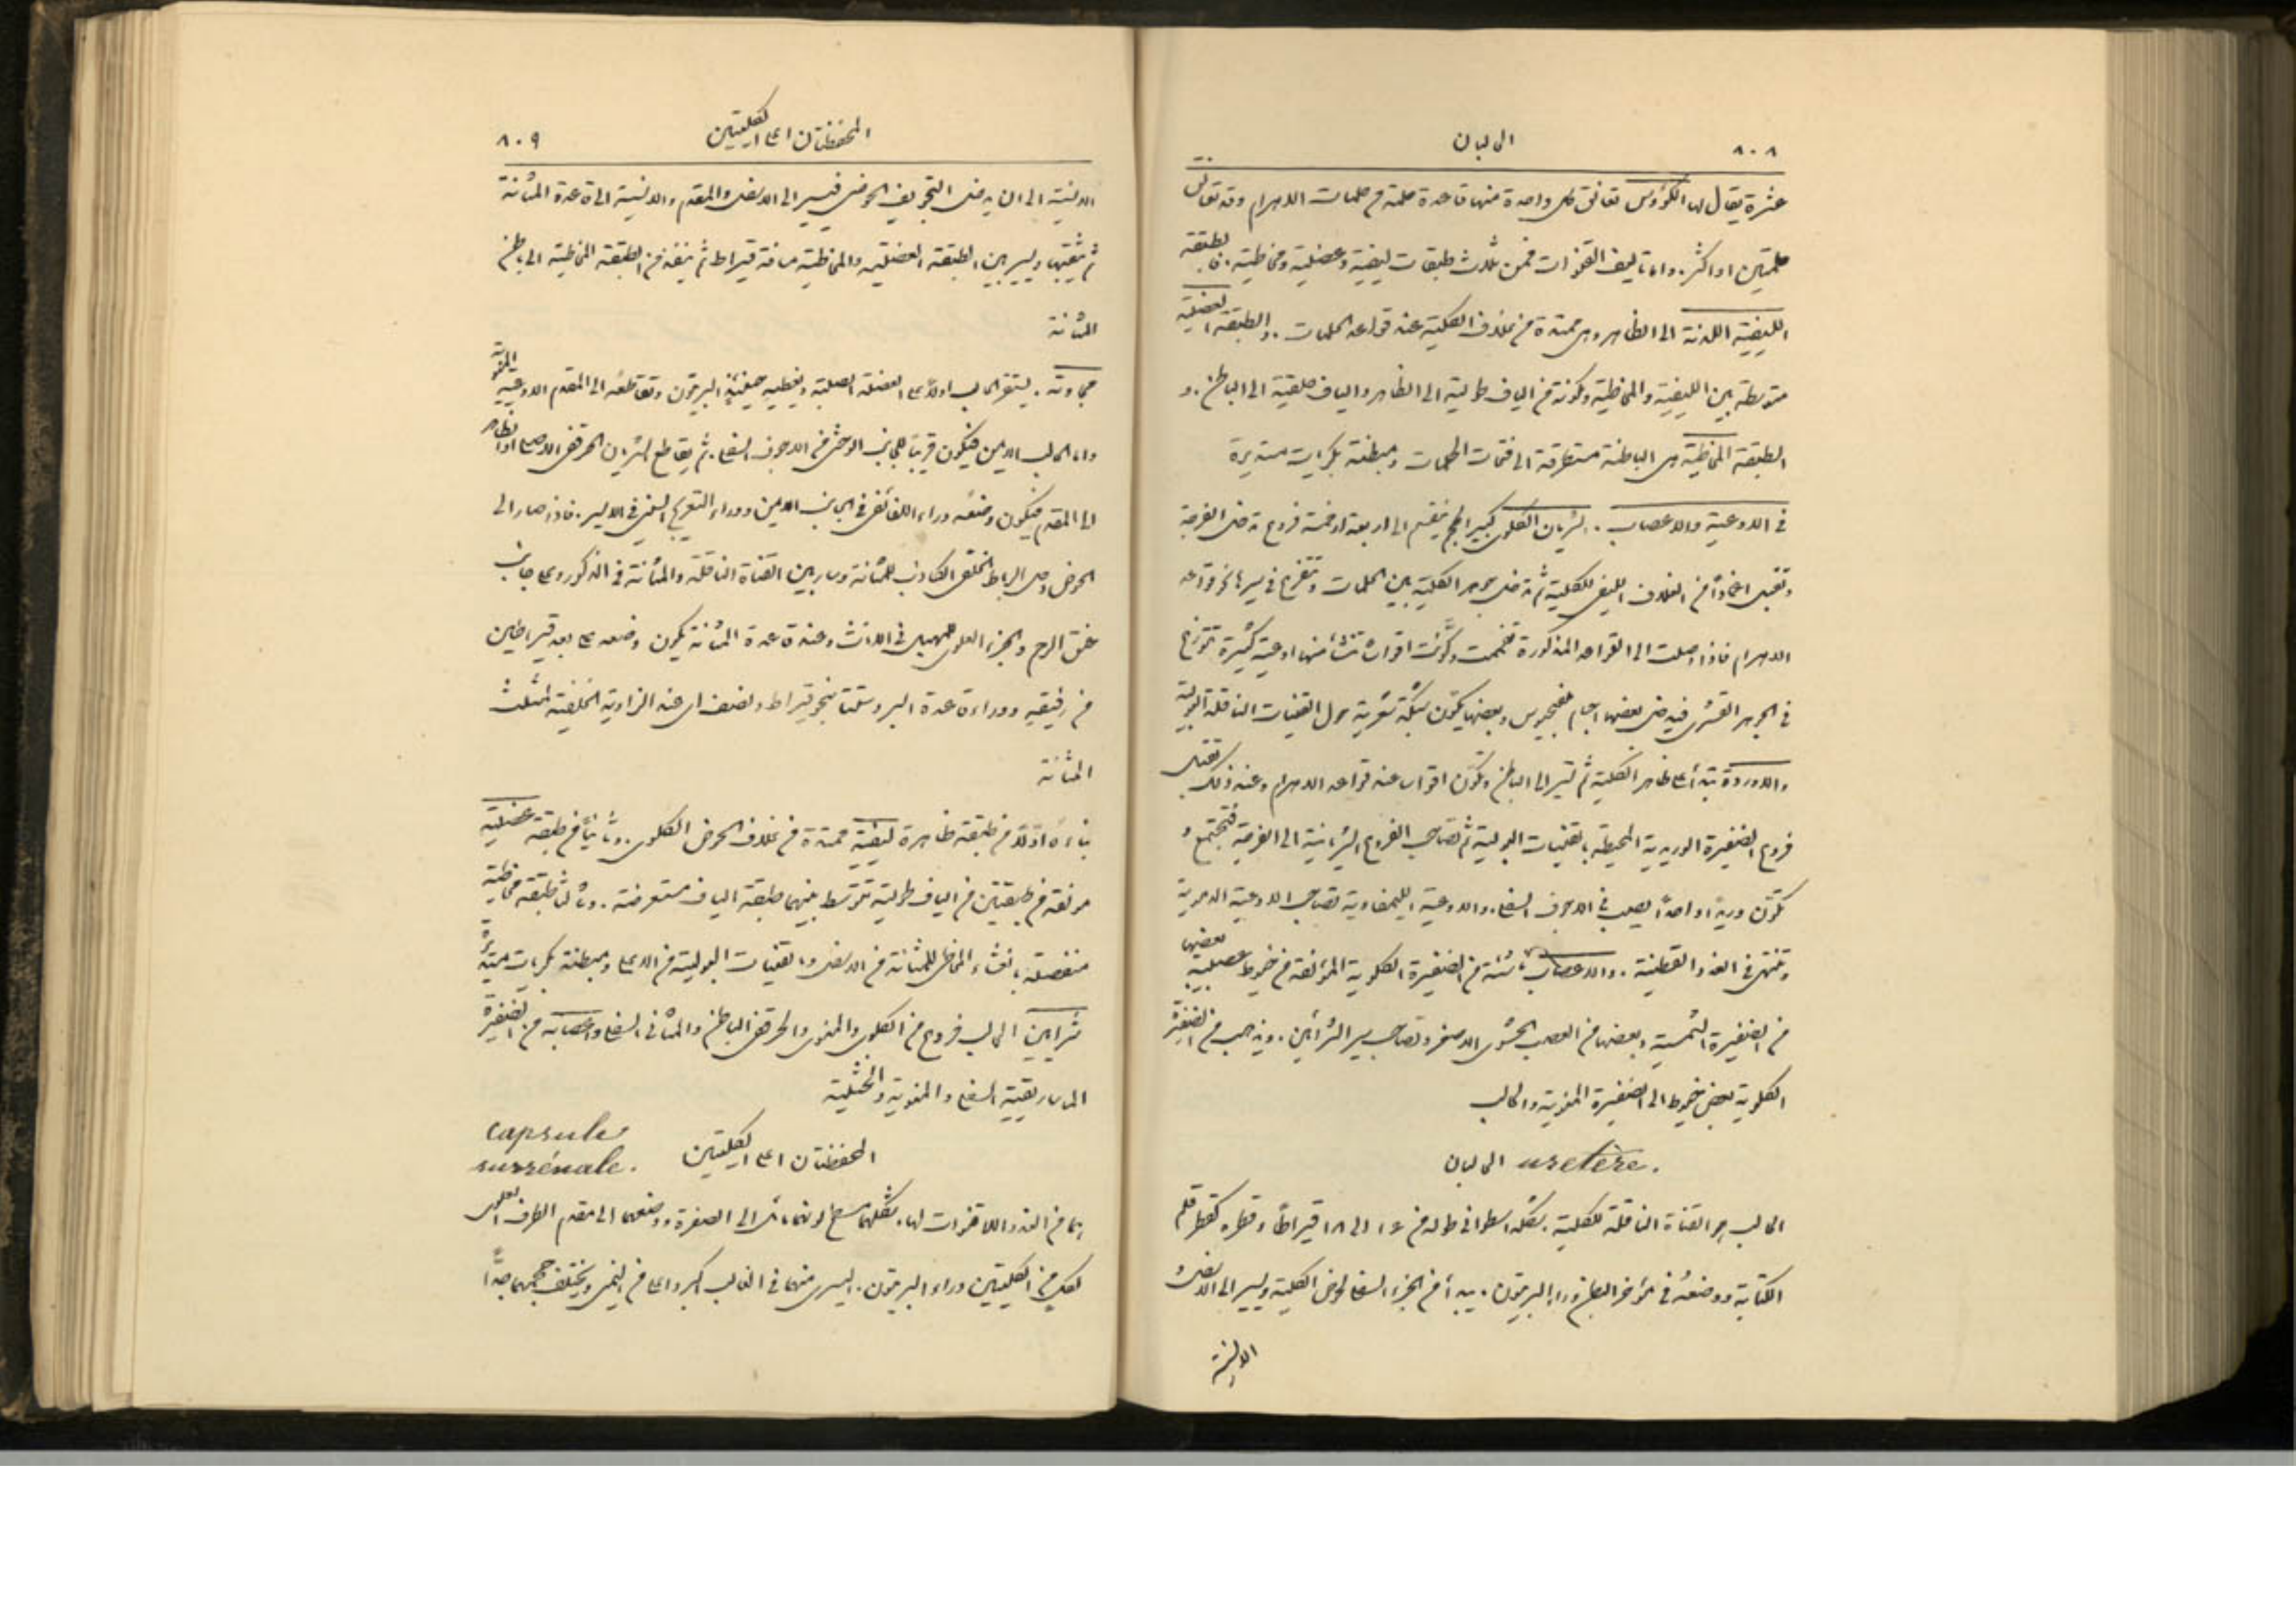 ٨٠٨
الحالبان
عشرة يقال لها الكؤوس تعانق كل واحدة منها قاعدة حلمة من حلمات الاهرام وقد تعانق
حلمتين او اكثر. واما تاليف القمزات فمن ثلاث طبقات ليفية وعضلية ومخاطية. فالطبقة
الليفية اللدنة الى الظاهر وهي ممتدة من غلاف الكلية عند قواعد الحلمات. والطبقة العضلية
متوسطة بين الليفية والمخاطية ومكونة من الياف طولية الى الظاهر والياف حلقية الى الباطن. و
الطبقة المخاطية هي الباطنة مستطرقة الى فتحات الحلمات ومبطنة بكريات مستديرة
في الاوعية والاعصاب. الشريان الكلوي كبير الحجم ينقسم الى اربعة او خمسة فروع تدخل الفرجة
وتقبل اغمادًا من الغلاف الليفي للكلية ثم تدخل جوهر الكلية بين الحلمات وتتفرع في سيرها نحو قواعد
الاهرام فاذا وصلت الى القواعد المذكورة ضخمت وكوَّنت اقواسًا تنشأ منها اوعية كثيرة تتوزع
في الجوهر القشري فيدخل بعضها اجسام ملفيجيوس وبعضها يكون شبكة شعرية حول القنيات الناقلة البولية
والاوردة تبتدأ على ظاهر الكلية ثم تسير الى الباطن وتكوّن اقواس عند قواعد الاهرام وعند ذلك تقبل
فروع الضفيرة الوريدية المحيطة بالقنيات البولية ثم تصاحب الفروع الشريانية الى الفرجة فتجتمع و
تكوّن وريدًا واحدًا يصب في الاجوف السفلي. والاوعية الليمفاوية تصاحب الاوعية الدموية
وتنتهي في الغدد القطنية. والاعصاب ناشئة من الضفيرة الكلوية المؤلفة من خيوط عصبية بعضها
من الضفيرة الشمسية وبعضها من العصب الحشوي الاصغر وتصاحب سير الشرائين. ويذهب من الضفيرة
الكلوية بعض خيوط الى الضفيرة المنوية والحالب
الحالبان uretère.
الحالب هو القناة الناقلة للكلية. شكله اسطواني طوله من ١٦ الى ١٨ قيراطًا وقطره كقطر قلم
الكتابة ووضعهُ في مؤخر البطن وراء البريتون. يبدأ من الجزء السفلي لحوض الكلية ويسير الى الاسفل و
الانسية
٨٠٩
المحفظتان اعلى الكليتين
الانسية الى ان يدخل التجويف الحوضي فيسير الى الاسفل والمقدم والانسية الى قاعدة المثانة
ثم يثقبها ويسير بين الطبقة العضلية والمخاطية مسافة قيراط ثم ينفذ من الطبقة المخاطية الى باطن
المثانة
مجاورته. يستقر الحالب اولًا على العضلة الصلبية ويغطيه حينئذٍ البريتون وتقاطعه الى المقدم الاوعية المنوية
واما الحالب الايمن فيكون قريبًا للجانب الوحشي من الاجوف السفلي. ثم يقاطع الشريان الحرقفي الاصلي او الظاهر
الى المقدم فيكون وضعه وراء اللفائفي في الجانب الايمن ووراء التعريج السيني في الايسر. فاذا صار الى
الحوض دخل الرباط الخلفي الكاذب للمثانة ومار بين القناة الناقلة والمثانة في الذكور وعلى جانب
عنق الرحم والجزء العلوي للمهبل في الاناث وعند قاعدة المثانة يكون وضعه على بعد قيراطين
من رفيقه ووراء قاعدة البروستتا بنحو قيراط ونصف اي عند الزاوية الخلفية لمثلث
المثانة
بناءه اولًا من طبقة ظاهرة ليفية ممتدة من غلاف الحوض الكلوي. وثانيًا من طبقة عضلية
مؤلفة من طبقتين من الياف طولية تتوسط بينهما طبقة الياف مستعرضة. وثالثًا طبقة مخاطية
متصلة بالغشاء المخاطي للمثانة من الاسفل وبالقنيات البولية من الاعلى ومبطنة بكريات مستديرة
شرايين الحالب فروع من الكلوي والمنوي والحرقفي الباطن والمثاني السفلي واعصابه من الضفيرة
الماساريقية السفلى والمنوية والخثلية
المحفظتان اعلى الكليتين capsule
surrénale.
هما من الغدد اللا قنوات لها. شكلهما مسطح لونهما مائل الى الصفرة ووضعهما الى مقدم الطرف العلوي
لكل من الكليتين وراء البريتون. اليسرى منهما في الغالب اكبر واعلى من اليمنى ويختلف حجمهما جدًّا